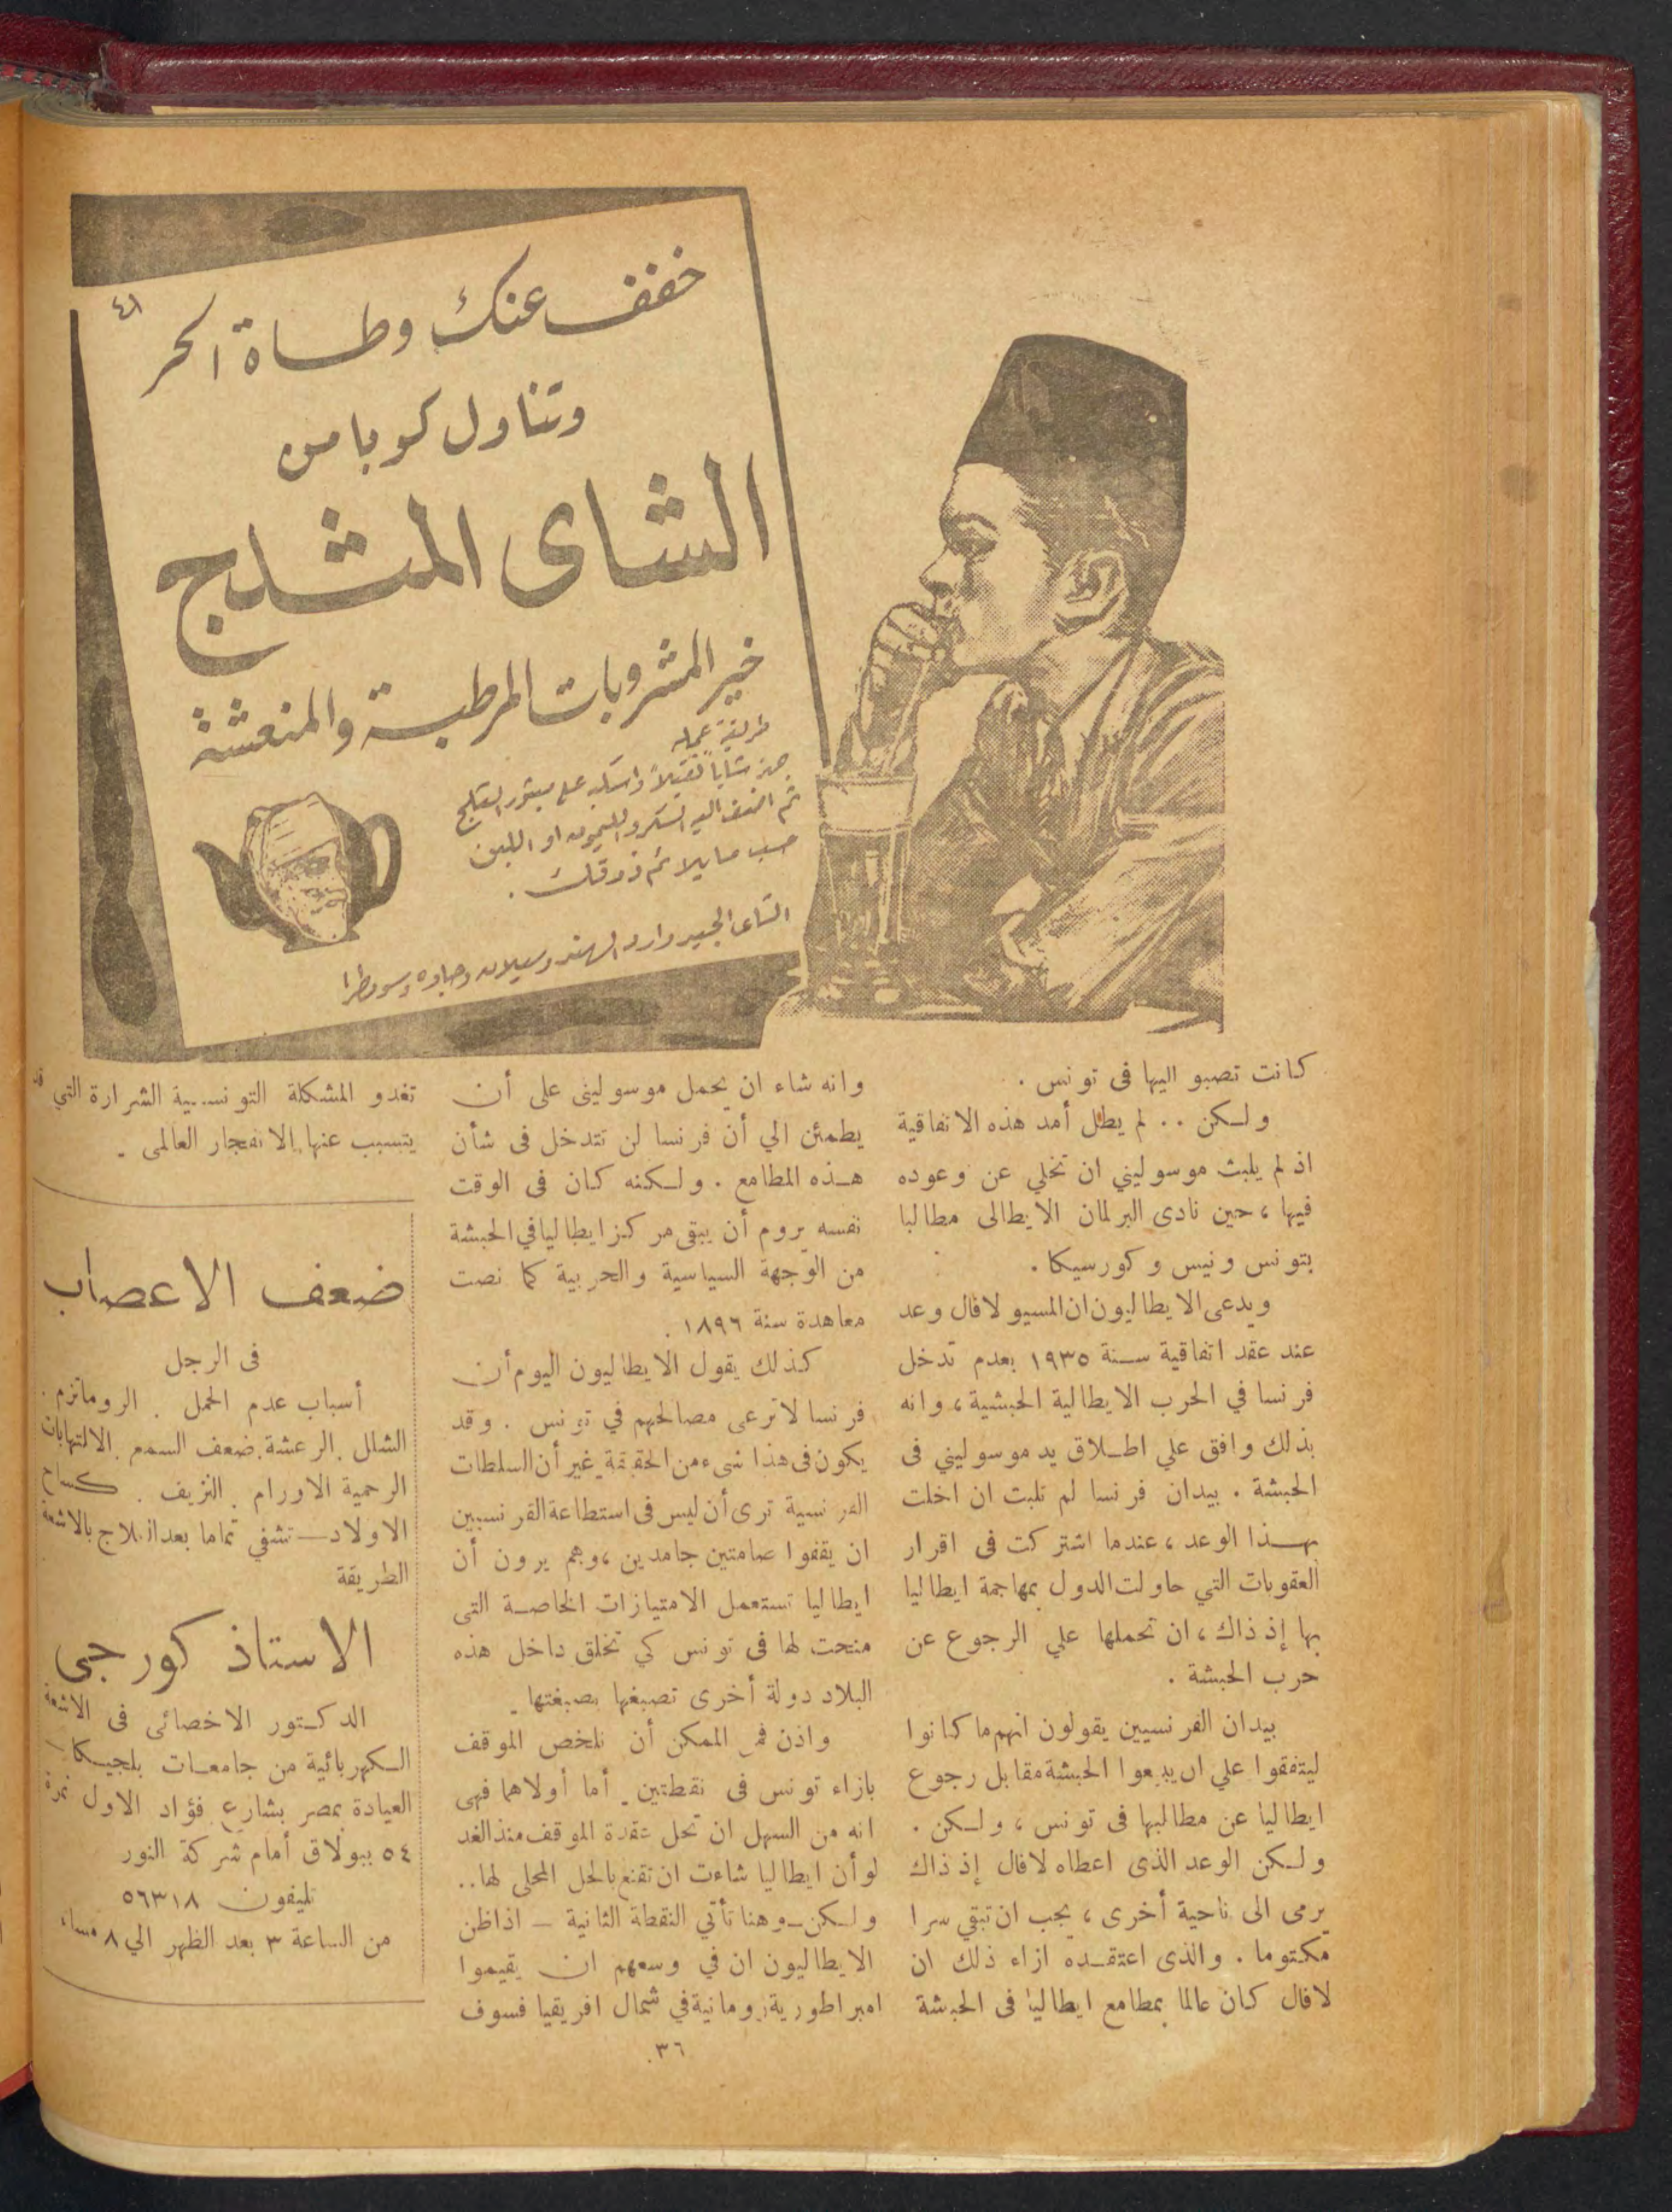 ٤١
خفف عنك وطاة الحر
وتناول كوبا من
الشاى المثلج
خير المشروبات المرطبة والمنعشة
طريقة عمله
جهز شاياً ثقيلاً واسكبه على مبشور الثلج
ثم اضف اليه السكر والليمون او اللبن
حسب ما يلائم ذوقك .
الشاى الجيد وارد الهند وسيلان وجاوه وسومطرا
كانت تصبو اليها فى تونس .
ولـكن . . لم يطل أمد هذه الاتفاقية
اذ لم يلبث موسوليني ان تخلي عن وعوده
فيها ، حين نادى البرلمان الايطالى مطالبا
بتونس ونيس وكورسيكا .
ويدعى الايطاليون ان المسيو لافال وعد
عند عقد اتفاقية سـنة ١٩٣٥ بعدم تدخل
فرنسا في الحرب الايطالية الحبشية ، وانه
بذلك وافق علي اطـلاق يد موسوليني فى
الحبشة . بيدان فرنسا لم تلبث ان اخلت
بهـــذا الوعد ، عندما اشتركت فى اقرار
العقوبات التي حاولت الدول بمهاجمة ايطاليا
بها إذ ذاك ، ان تحملها علي الرجوع عن
حرب الحبشة .
بيدان الفرنسيين يقولون انهم ما كانوا
ليتفقوا علي ان يدعوا الحبشة مقابل رجوع
ايطاليا عن مطالبها فى تونس ، ولـكن .
ولـكن الوعد الذى اعطاه لافال إذ ذاك
يرمى الى ناحية أخرى ، يجب ان تبقي سرا
مكتوما . والذى اعتقـده ازاء ذلك ان
لافال كان عالما بمطامع ايطاليا فى الحبشة
وانه شاء ان يحمل موسولينى على أن
يطمئن الي أن فرنسا لن تتدخل فى شأن
هـذه المطامع . ولـكنه كان فى الوقت
نفسه يروم أن يبقى مركز ايطاليا في الحبشة
من الوجهة السياسية والحربية كما نصت
معاهدة سنة ١٨٩٦ .
كذلك يقول الايطاليون اليوم أن
فرنسا لا ترعى مصالحهم في تونس . وقد
يكون فى هذا شىء من الحقيقة غير أن السلطات
الفرنسية ترى أن ليس فى استطاعة الفرنسيين
ان يقفوا صامتين جامدين ، وهم يرون أن
ايطاليا تستعمل الامتيازات الخاصـة التى
منحت لها فى تونس كي تخلق داخل هذه
البلاد دولة أخرى تصبغها بصبغتها .
واذن فمن الممكن أن نلخص الموقف
بازاء تونس فى نقطتين . أما أولاهما فهى
انه من السهل ان تحل عقدة الموقف منذ الغد
لو أن ايطاليا شاءت ان تقنع بالحل المحلى لها . .
ولـكن ــ وهنا تأتي النقطة الثانية ــ اذا ظن
الايطاليون ان في وسعهم ان يقيموا
امبراطورية رومانية في شمال افريقيا فسوف
تغدو المشكلة التونسـية الشرارة التي قد
يتسبب عنها الانفجار العالمى .
ضعف الاعصاب
فى الرجل
أسباب عدم الحمل . الروماتزم .
الشلل . الرعشة . ضعف السمع . الالتهابات
الرحمية الاورام . النزيف . كساح
الاولاد ــ تشفي تماما بعد العلاج بالاشعة
الطريقة
الاستاذ كورجى
الدكـتور الاخصائى فى الاشعة
الـكهربائية من جامعـات بلجيـكا
العيادة بمصر بشارع فؤاد الاول نمرة
٥٤ ببولاق أمام شركة النور
تليفون ٥٦٣١٨
من الساعة ٣ بعد الظهر الي ٨ مساء
٣٦